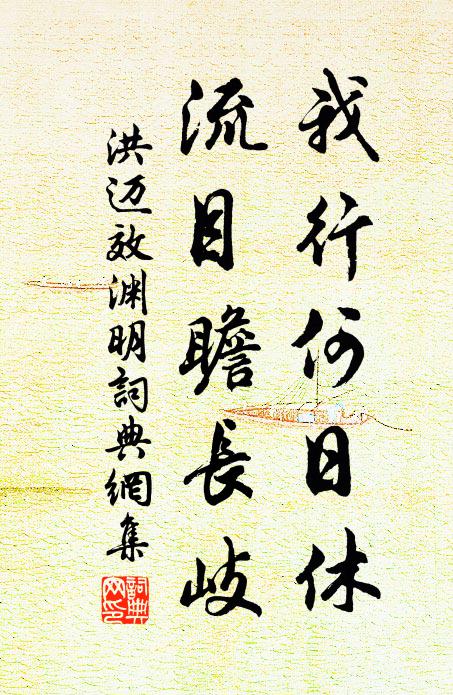 我行何日休
流目瞻長岐
洪迈效渊明詞典網集
詞典
网印